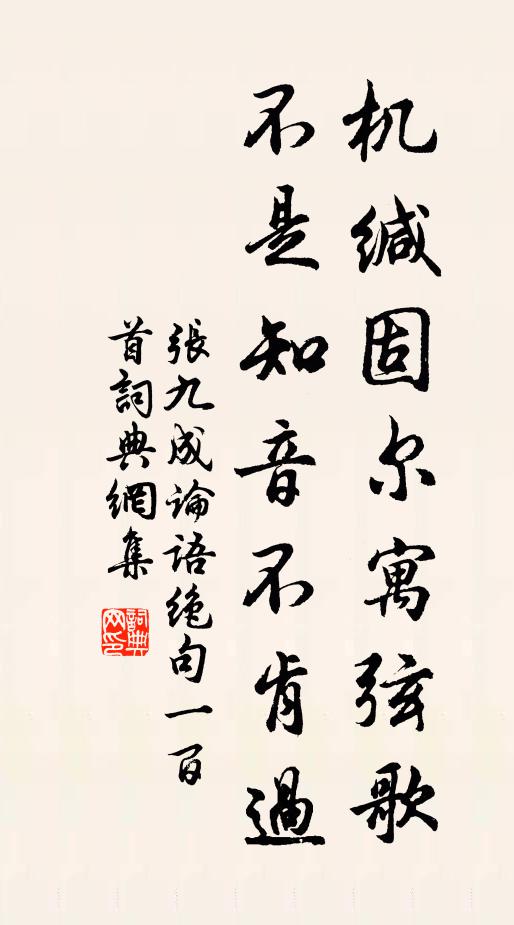 机缄固尔寓弦歌
不是知音不肯過
張九成論語絶句一百
首詞典網集
詞典网印